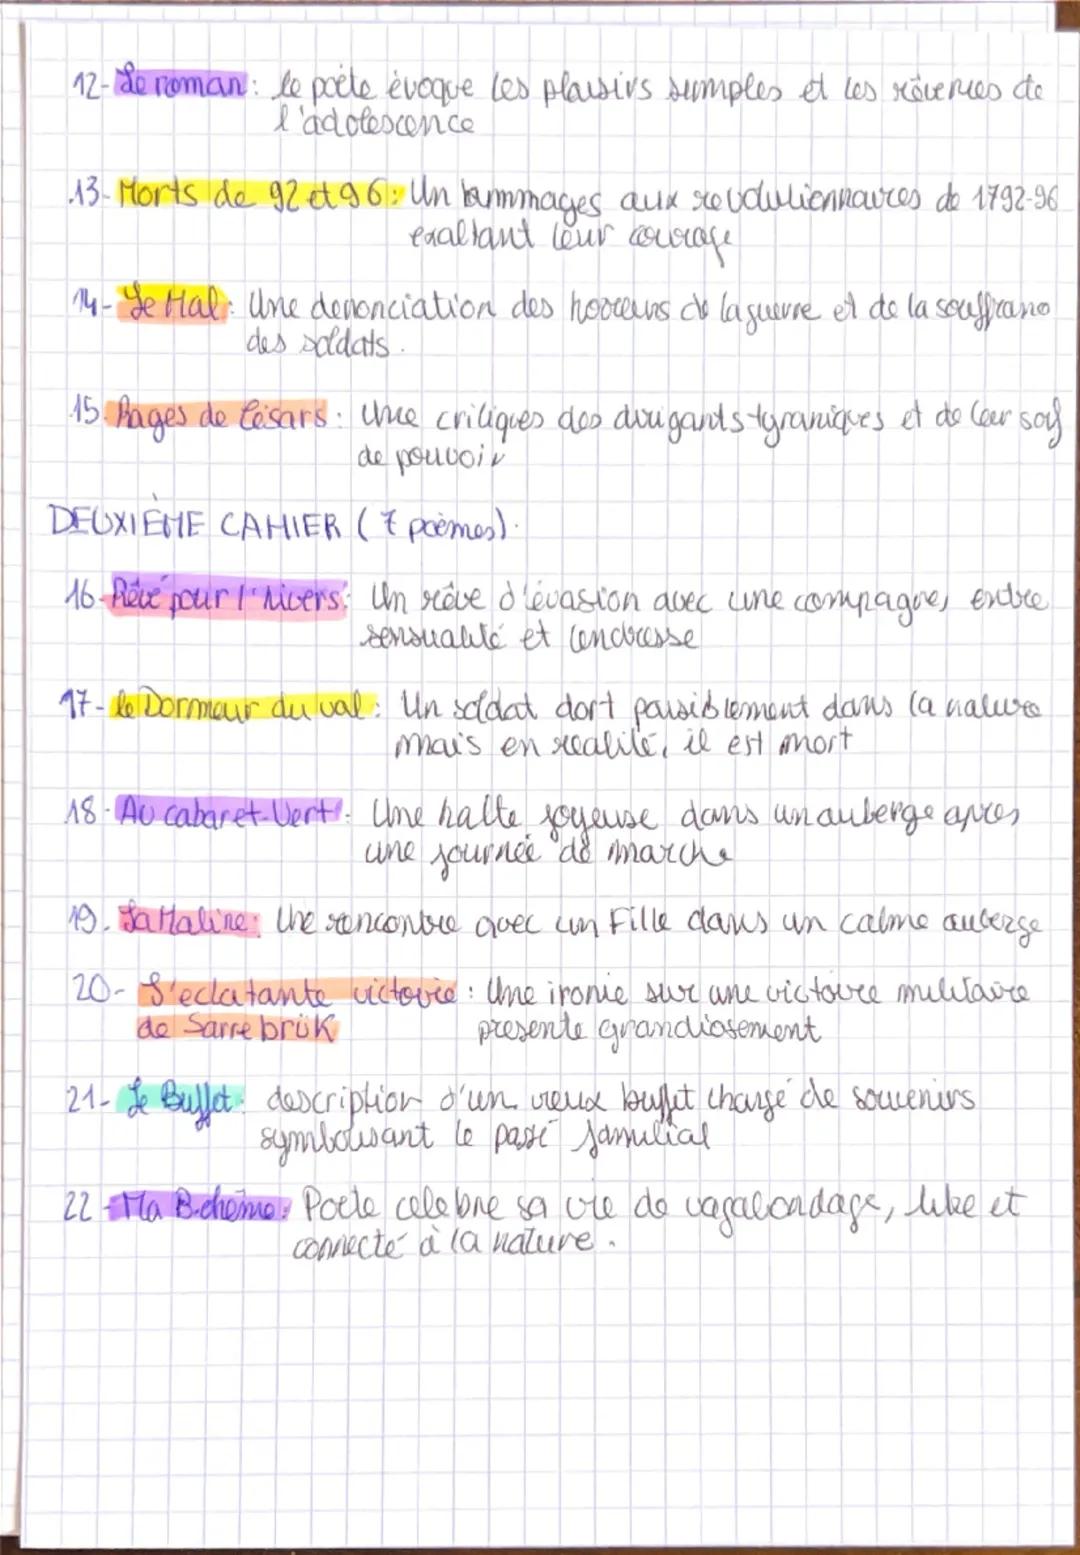 12- Le roman : le poète évoque les plaisirs simples et les rêveries de
l'adolescence
13- Morts de 92 et 96 : Un hommages aux revolutiennaires de 1792-96
exaltant leur courage
14- Le Mal : Une denonciation des horreurs de la guerre et de la souffrance
des soldats.
15. Rages de Césars : Une critiques des dirigants tyraniques et de leur soif
de pouvoir
DEUXIÈME CAHIER (7 poèmes).
16- Rêvé pour l'hivers : Un rêve d'évasion avec une compagne, entre
sensualité et tendresse
17- le Dormeur du val : Un soldat dort paisiblement dans la nature
mais en realité, il est mort
18- Au cabaret-Vert : Une halte joyeuse dans un auberge apres
une journée de marche
19. La Maline : Une rencontre avec un Fille dans un calme auberge
20- L'eclatante victoire : Une ironie sur une victoire militaire
de Sarrebrük presente grandiosement
21- Le Buffet : description d'un vieux buffet chargé de souvenirs
symbolisant le passé familial
22- Ma Bohème : Poete celebre sa vie de vagabondage, libre et
connecté à la nature.